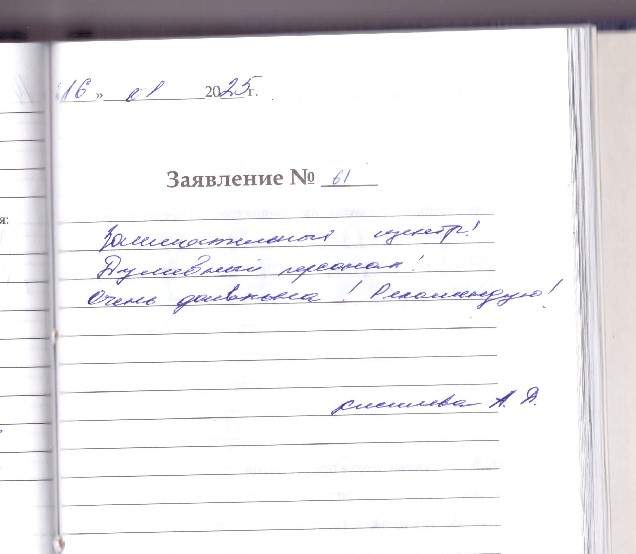 16 » 01 2025 г.
Заявление № 61
я:
Замечательный центр!
Душевный персонал!
Очень довольна! Рекомендую!
Киселева А. А.